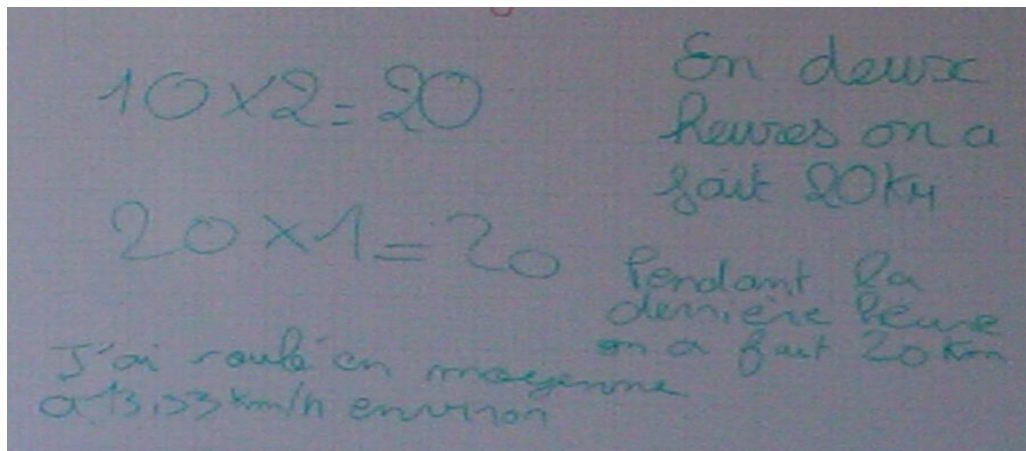 10×2=20
En deux
heures on a
fait 20Km
20×1=20
Pendant la
dernière heure
on a fait 20Km
J'ai roulé en moyenne
a 13,33km/h environ